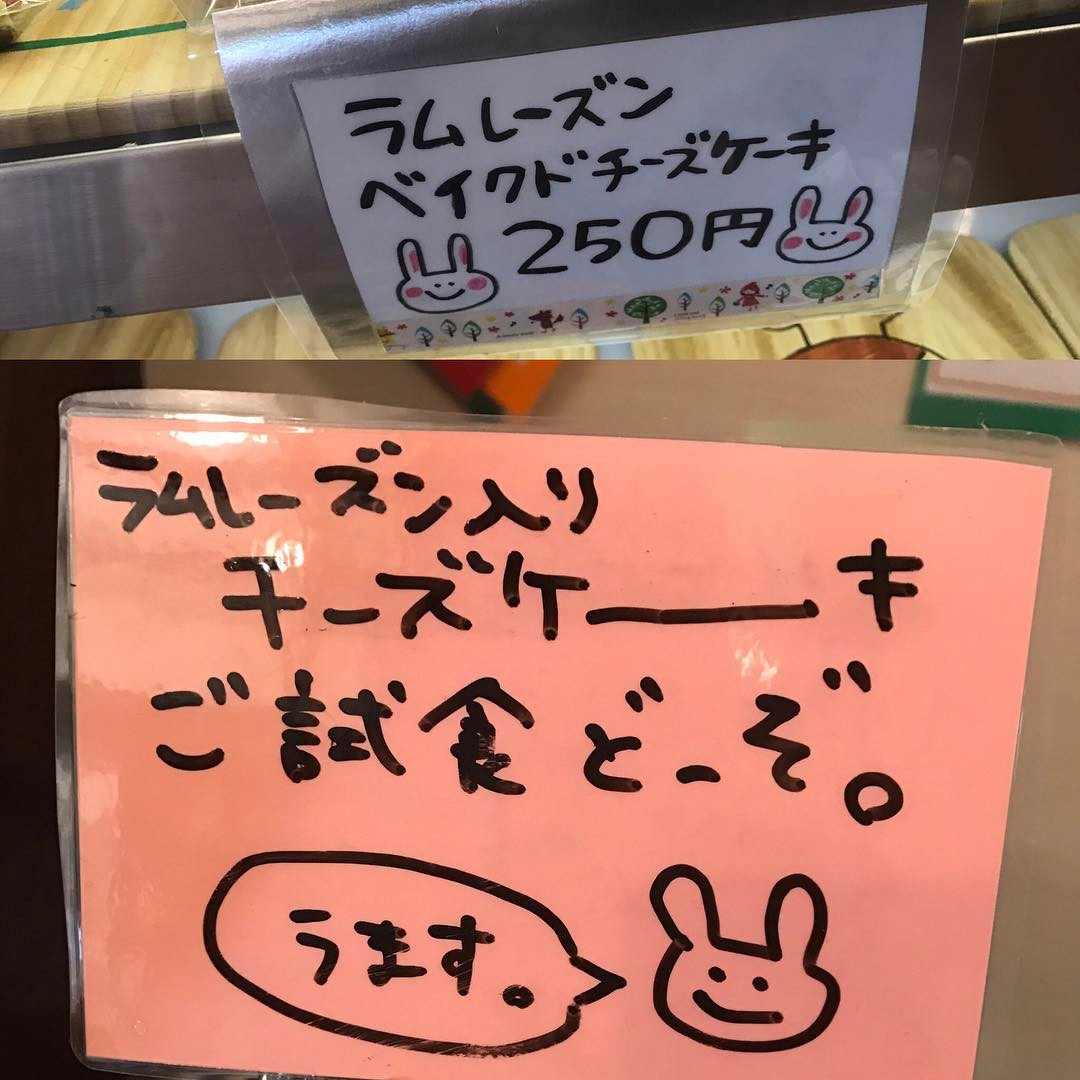 ラムレーズン
ベイクドチーズケーキ
250円
ラムレーズン入り
チーズケーーキ
ご試食どーぞ。
うます。